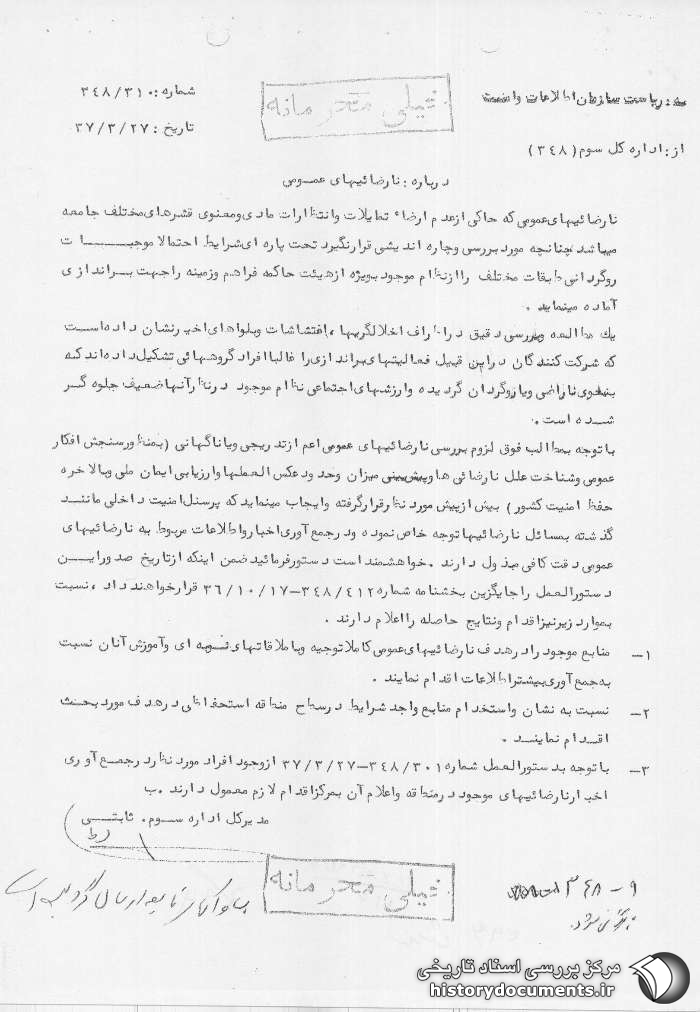 خیلی محرمانه
به : ریاست سازمان اطلاعات و امنیت
شماره : ۳۴۸/۳۱۰
تاریخ : ۳۷/۳/۲۷
از : اداره کل سوم (۳۴۸)
درباره : نارضائیهای عمومی
نارضائیهای عمومی که حاکی از عدم ارضاء تمایلات وانتظارات مادی ومعنوی قشرهای مختلف جامعه
میباشد چنانچه مورد بررسی وچاره اندیشی قرارنگیرد تحت پاره ای شرایط احتمالا موجبـــات
روگردانی طبقات مختلف را از نظام موجود بویژه ازهیئت حاکمه فراهم وزمینه راجهت بـراندازی
آماده مینماید .
یك مطالعه وبررسی دقیق در اطراف اخلالگریها ، اغتشاشات وبلواهای اخیرنشان داده‌است
که شرکت کنندگان دراین قبیل فعالیتهای براندازی را غالبا افراد گروههائی تشکیل داده‌اند که
بنحوی ناراضی ویا روگردان گردیده وارزشهای اجتماعی نظام موجود درنظر آنها ضعیف جلوه گـر
شده است .
با توجه بمطالب فوق لزوم بررسی نارضائیهای عمومی اعم ازتدریجی ویا ناگهانی (بمنظور سنجش افکار
عمومی وشناخت علل نارضائی ها وپیش‌بینی میزان وحدود عکس العملها وارزیابی ایمان ملی وبالاخره
حفظ امنیت کشور) بیش ازپیش مورد نظرقرارگرفته وایجاب مینماید که پرسنل امنیت داخلی ماننـد
گذشته بمسائل نارضائیها توجه خاص نموده ودرجمع آوری اخبار واطلاعات مربوط به نارضائیهای
عمومی دقت کافی مبذول دارند . خواهشمند است دستورفرمائید ضمن اینکه ازتاریخ صدور ایـــن
دستورالعمل را جایگزین بخشنامه شماره ۳۴۸/۴۱۲-۳۶/۱۰/۱۷ قرارخواهند داد ، نسبت
بموارد زیرنیز اقدام ونتایج حاصله را اعلام دارند .
۱- منابع موجود را درهدف نارضائیهای عمومی کاملا توجیه وبا ملاقاتهای نوبه ای وآموزش آنان نسبت
به جمع آوری بیشتر اطلاعات اقدام نمایند .
۲- نسبت به نشان واستخدام منابع واجد شرایط درسطح منطقه استحفاظی درهدف مورد بحـث
اقـدام نماینـد .
۳- با توجه بدستورالعمل شماره ۳۴۸/۳۰۱-۳۷/۳/۲۷ ازوجود افراد مورد نظر درجمـع آوری
اخبار نارضائیهای موجود درمنطقه واعلام آن بمرکز اقدام لازم معمول دارند . ب
مدیرکل اداره سـوم . ثابتـی
خیلی محرمانه
۹ - ۳۴۸
مرکز بررسی اسناد تاریخی
historydocuments.ir